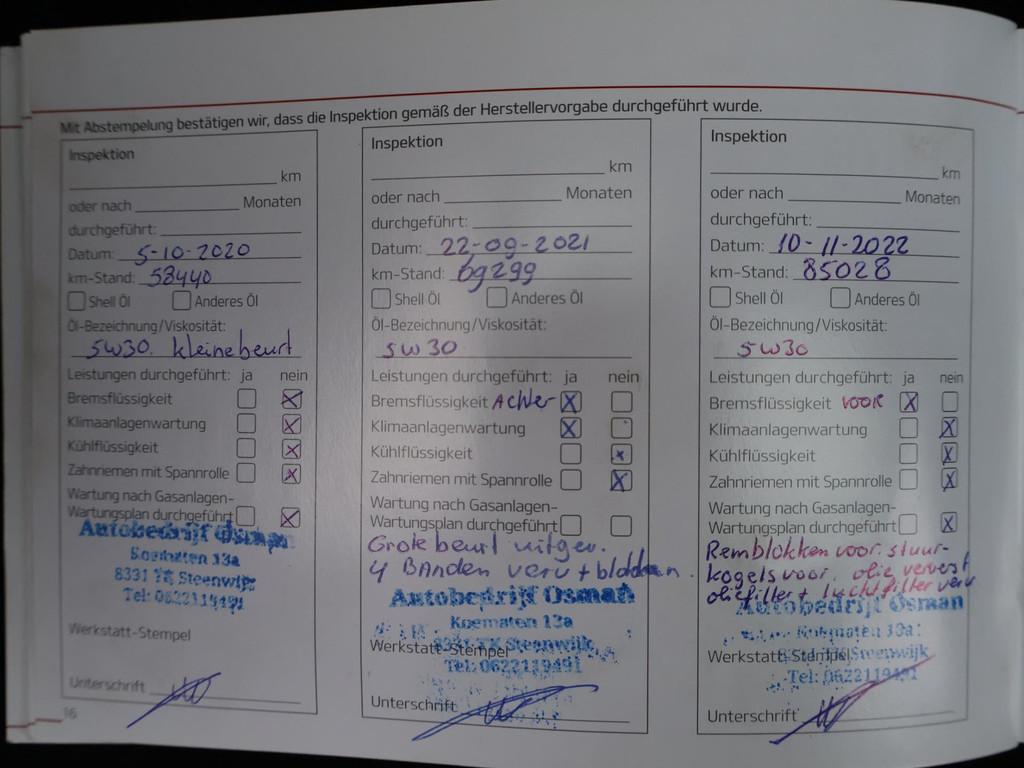 Mit Abstempelung bestätigen wir, dass die Inspektion gemäß der Herstellervorgabe durchgeführt wurde.
Inspektion
km
oder nach Monaten
durchgeführt:
Datum: 5-10-2020
km-Stand: 58440
Shell Öl Anderes Öl
Öl-Bezeichnung/Viskosität:
5W30. kleine beurt
Leistungen durchgeführt: ja nein
Bremsflüssigkeit X
Klimaanlagenwartung X
Kühlflüssigkeit X
Zahnriemen mit Spannrolle X
Wartung nach Gasanlagen-
Wartungsplan durchgeführt X
Autobedrijf Osman
Koematen 13a
8331 TK Steenwijk
Tel: 0622119491
Werkstatt-Stempel
Unterschrift
16
Inspektion
km
oder nach Monaten
durchgeführt:
Datum: 22-09-2021
km-Stand: 69299
Shell Öl Anderes Öl
Öl-Bezeichnung/Viskosität:
5W30
Leistungen durchgeführt: ja nein
Bremsflüssigkeit Achter X
Klimaanlagenwartung X
Kühlflüssigkeit x
Zahnriemen mit Spannrolle X
Wartung nach Gasanlagen-
Wartungsplan durchgeführt
Grote beurt uitgev.
4 Banden verv +
Autobedrijf Osman
Koematen 13a
8331 TK Steenwijk
Werkstatt-Stempel
Tel: 0622119491
Unterschrift
Inspektion
km
oder nach Monaten
durchgeführt:
Datum: 10-11-2022
km-Stand: 85028
Shell Öl Anderes Öl
Öl-Bezeichnung/Viskosität:
5W30
Leistungen durchgeführt: ja nein
Bremsflüssigkeit VOOR X
Klimaanlagenwartung X
Kühlflüssigkeit X
Zahnriemen mit Spannrolle X
Wartung nach Gasanlagen-
Wartungsplan durchgeführt X
Remblokken voor. stuur-
kogels voor. olie ververst
oliefilter + luchtfilter verv
Autobedrijf Osman
Koematen 13a
Steenwijk
Werkstatt-Stempel
Tel: 0622119491
Unterschrift